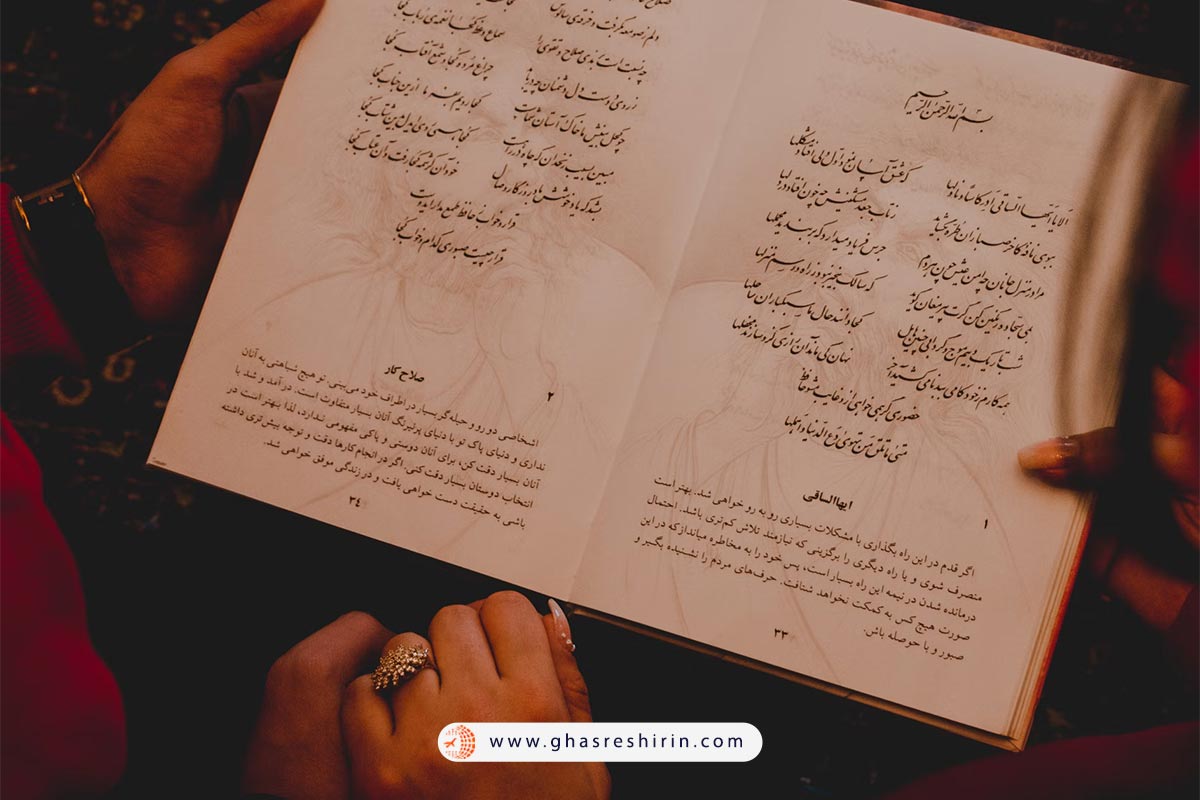 بسم الله الرحمن الرحیم
الا یا ایها الساقی ادر کاسا و ناولها که عشق آسان نمود اول ولی افتاد مشکلها
ببوی نافه کاخر صبا زان طره بگشاید ز تاب جعد مشکینش چه خون افتاد در دلها
مرا در منزل جانان چه امن عیش چون هر دم جرس فریاد میدارد که بربندید محملها
بمی سجاده رنگین کن گرت پیر مغان گوید که سالک بیخبر نبود ز راه و رسم منزلها
شب تاریک و بیم موج و گردابی چنین هایل کجا دانند حال ما سبکباران ساحلها
همه کارم ز خود کامی ببدنامی کشید آخر نهان کی ماند آن رازی کزو سازند محفلها
حضوری گر همی خواهی ازو غایب مشو حافظ
متی ما تلق من تهوی دع الدنیا و اهملها
۱ ایها الساقی
اگر قدم در این راه بگذاری با مشکلات بسیاری رو به رو خواهی شد. بهتر است
منصرف شوی و یا راه دیگری را برگزینی که نیازمند تلاش کم‌تری باشد. احتمال
درمانده شدن در نیمه این راه بسیار است، پس خود را به مخاطره میانداز که در این
صورت هیچ کس به کمکت نخواهد شتافت. حرف‌های مردم را نشنیده بگیر و
صبور و با حوصله باش.
۳۳
دلم ز صومعه بگرفت و خرقه سالوس
چه نسبت است برندی صلاح و تقوی را سماع وعظ کجا نغمه رباب کجا
ز روی دوست دل دشمنان چه دریابد چراغ مرده کجا و شمع آفتاب کجا
چو کحل بینش ما خاک آستان شماست کجا رویم بفرما ازین جناب کجا
مبین بسیب زنخدان که چاه در راه است کجا همی روی ای دل بدین شتاب کجا
بشد که یاد خوشش باد روزگار وصال خود آن کرشمه کجا رفت و آن عتاب کجا
قرار و خواب ز حافظ طمع مدار ای دوست
قرار چیست صبوری کدام و خواب کجا
۲ صلاح کار
اشخاصی دو رو و حیله‌گر بسیار در اطراف خود می‌بینی. تو هیچ شباهتی به آنان
نداری و دنیای پاک تو با دنیای پرنیرنگ آنان بسیار متفاوت است. در آمد و شد با
آنان بسیار دقت کن، برای آنان دوستی و پاکی مفهومی ندارد، لذا بهتر است در
انتخاب دوستان بسیار دقت کنی. اگر در انجام کارها دقت و توجه بیش‌تری داشته
باشی به حقیقت دست خواهی یافت و در زندگی موفق خواهی شد.
۳۴
www.ghasreshirin.com